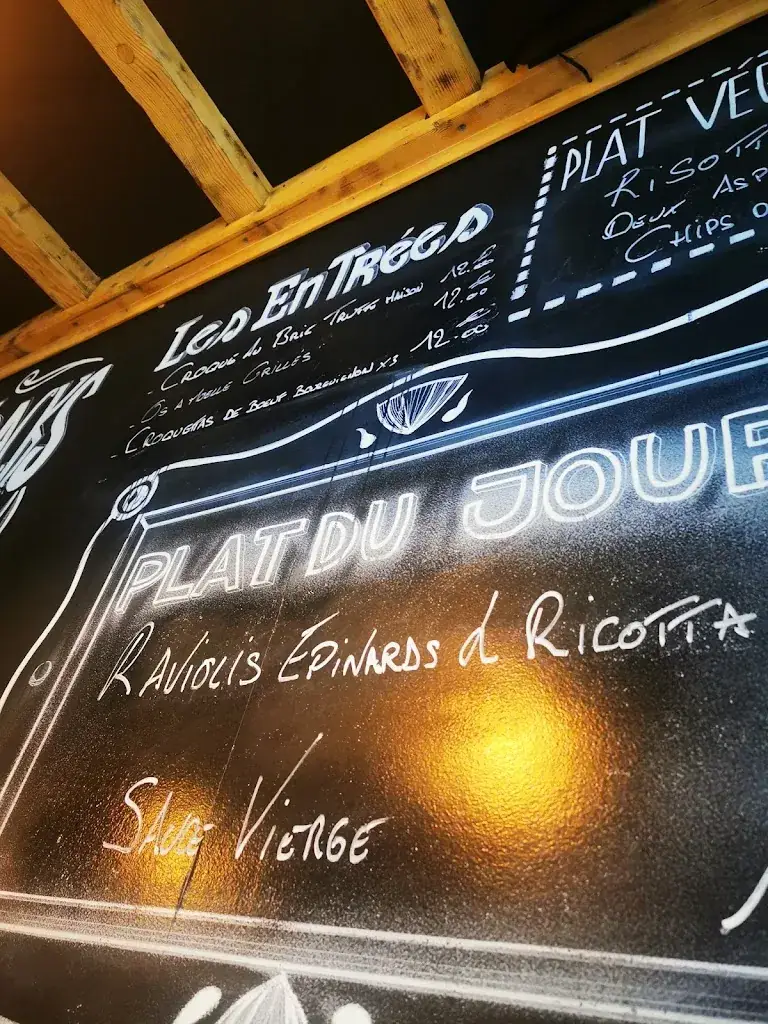 Les Entrées
- Croque au Brie Truffe Maison 12.00
- Os à Moelle Grillés 12.00
- Croquettas de Boeuf Bourguignon x3 12.00
PLAT VÉG
RISOTT
DEUX ASP
CHIPS
PLAT DU JOUR
RAVIOLIS EPINARDS & RICOTTA
SAUCE VIERGE